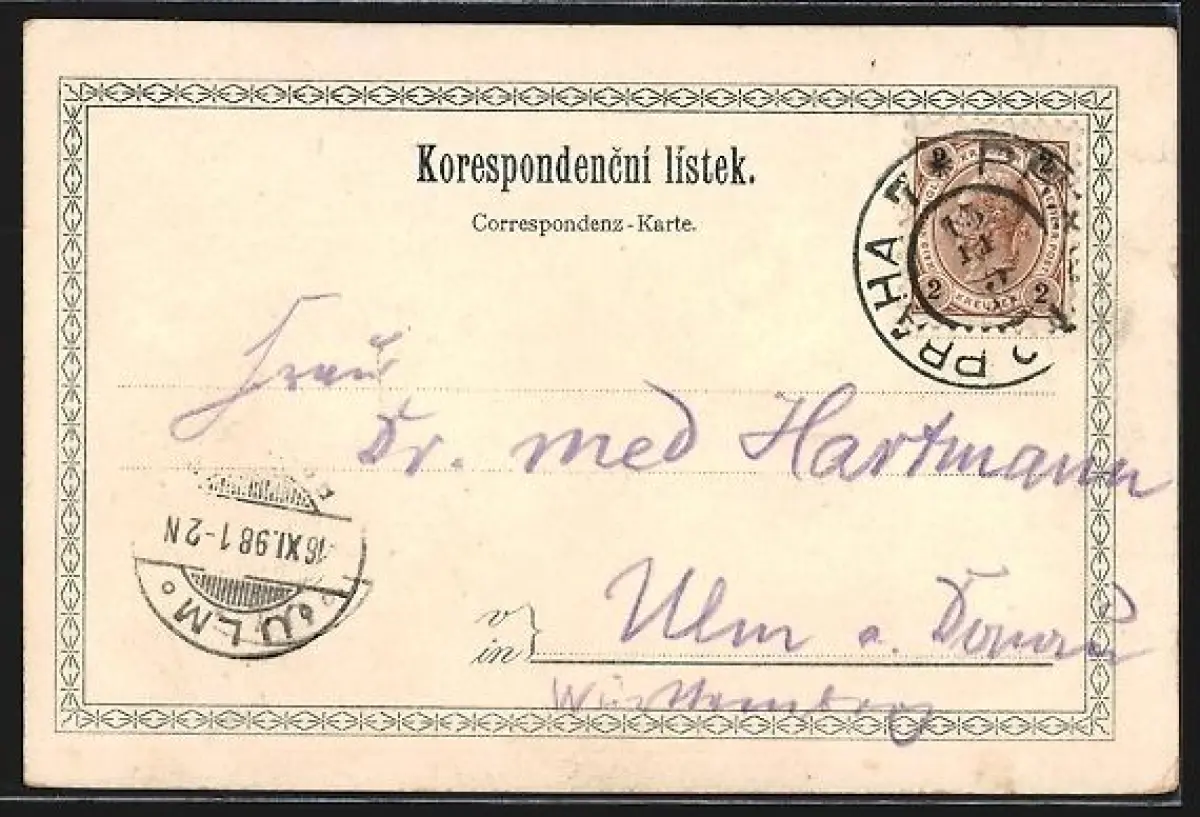 Korespondenční lístek.
Correspondenz-Karte.
2 2
2 KREUZER 2
PRAHA
Frau
Dr. med Hartmann
16 XI.98 1-2N
ULM
v
in
Ulm a. Donau
Württemberg